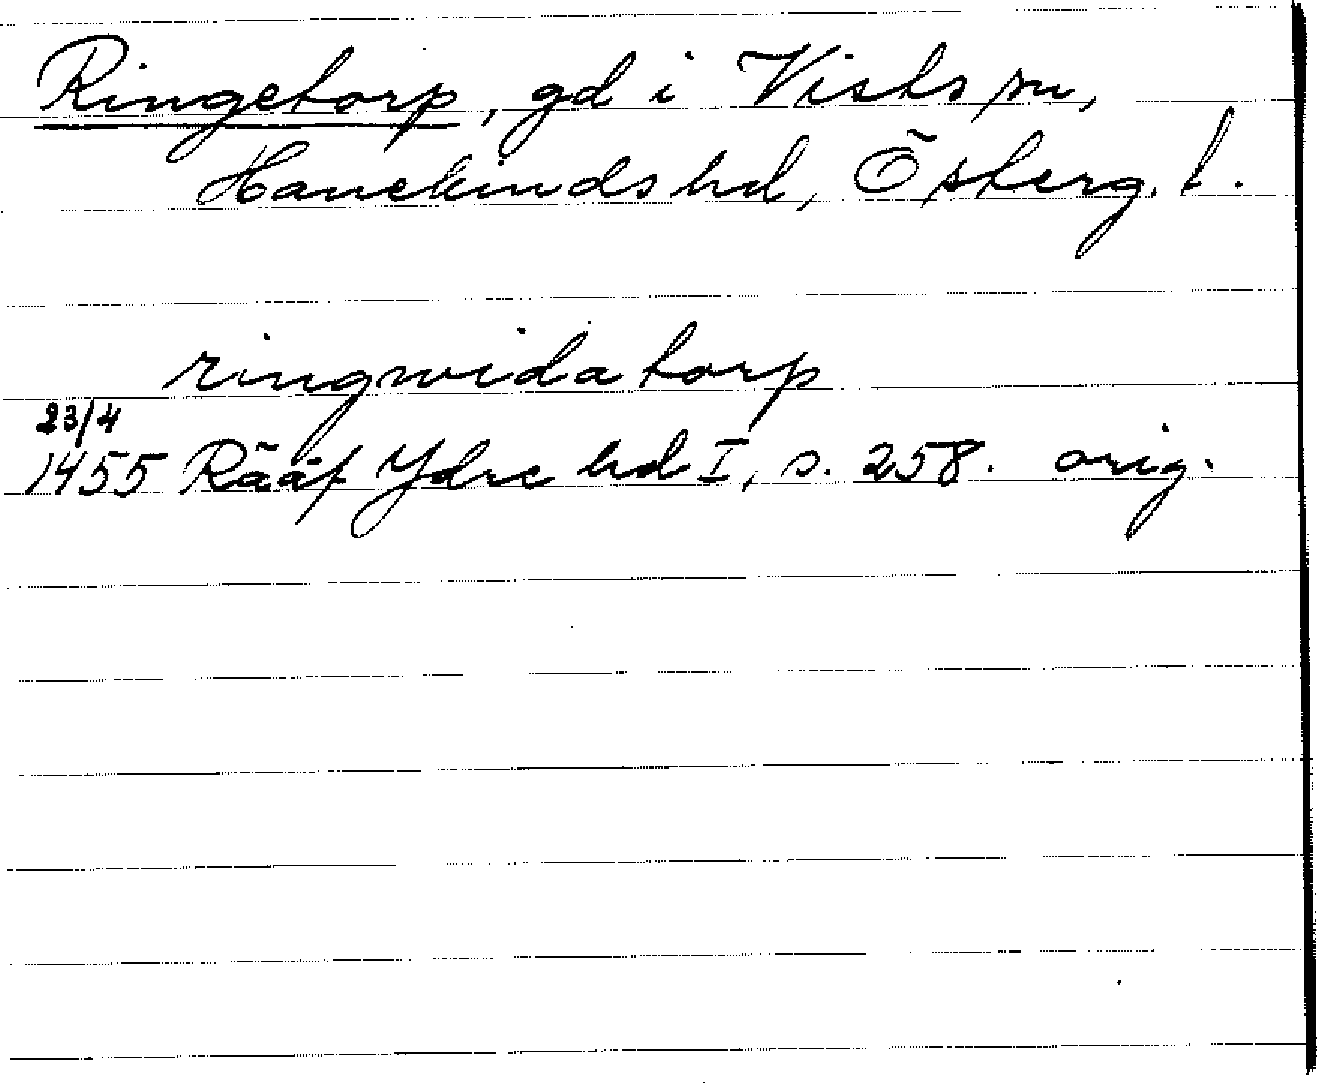 Ringetorp, gd i Vists sn,
Hanekinds hd, Österg. l.
ringwida torp
23/4
1455 Rääf Ydre hd I, s. 258. orig.